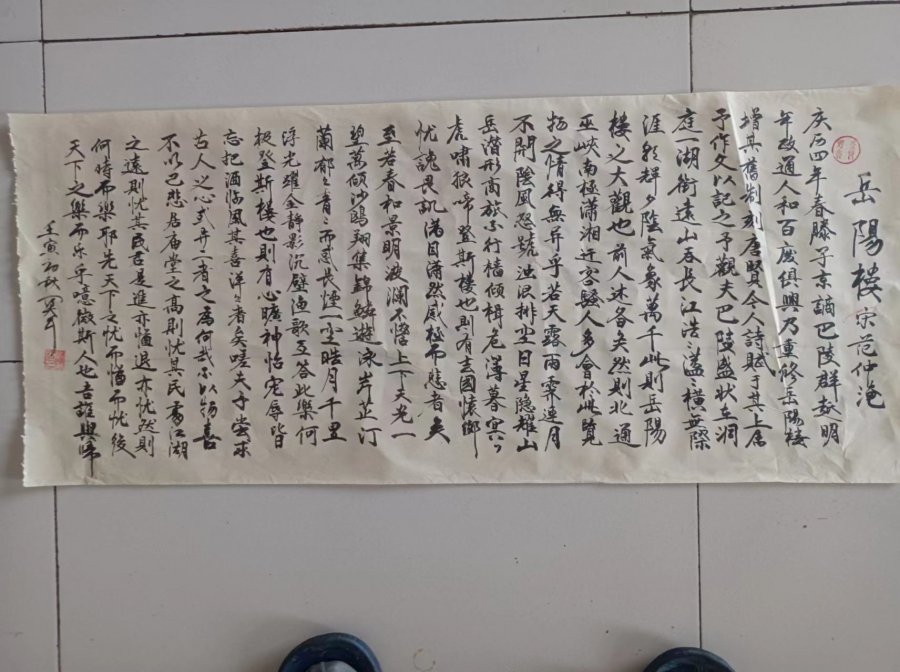 岳陽楼 宋 范仲淹
庆历四年春滕子京謫巴陵群越明
年政通人和百废俱興乃重修岳陽楼
增其舊制刻唐賢今人詩賦于其上属
予作文以記之予觀夫巴陵盛状在洞
庭一湖銜遠山吞長江浩〻荡〻橫無際
涯朝群夕陰氣象萬千此則岳陽
楼之大觀也前人述备矣然則北通
巫峽南極瀟湘迁客騷人多會於此覽
物之情得無异乎若夫霪雨霏連月
不開陰風怒號浊浪排空日星隐耀山
岳潛形商旅不行檣倾楫危薄暮冥〻
虎嘯猿啼登斯楼也則有去國懷鄉
忧讒畏譏满目萧然感極而悲者矣
至若春和景明波澜不惊上下天光一
碧萬倾沙鷗翔集錦鱗遊泳岸芷汀
蘭郁〻青〻而或長烟一空皓月千里
浮光耀金静影沉壁渔歌互答此樂何
极登斯楼也則有心曠神怡宠辱皆
忘把酒临風其喜洋〻者矣嗟夫予嘗求
古人之心或异二者之為何哉不以物喜
不以己悲居庙堂之高則忧其民處江湖
之遠則忧其君是進亦忧退亦忧然則
何時而樂耶先天下之忧而忧後
天下之樂而乐乎噫微斯人也吾誰與歸
壬寅初秋